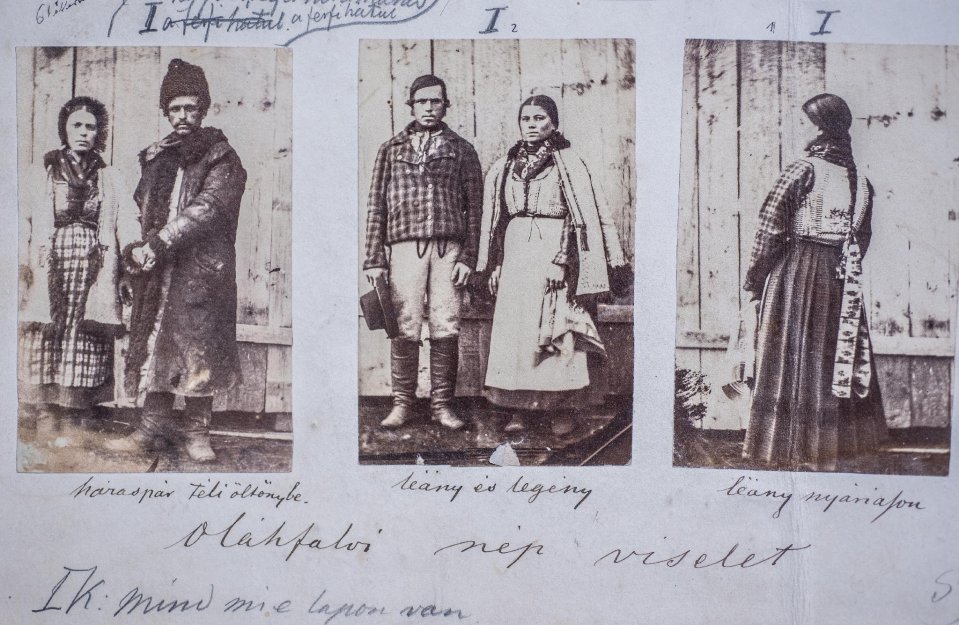 I I 2 1) I
a férfi hátul. a férfi hátul
háraspár téli öltönybe.
leány és legény
leány nyáriason
Oláhfalvi nép viselet
IK: mind mi e lapon van